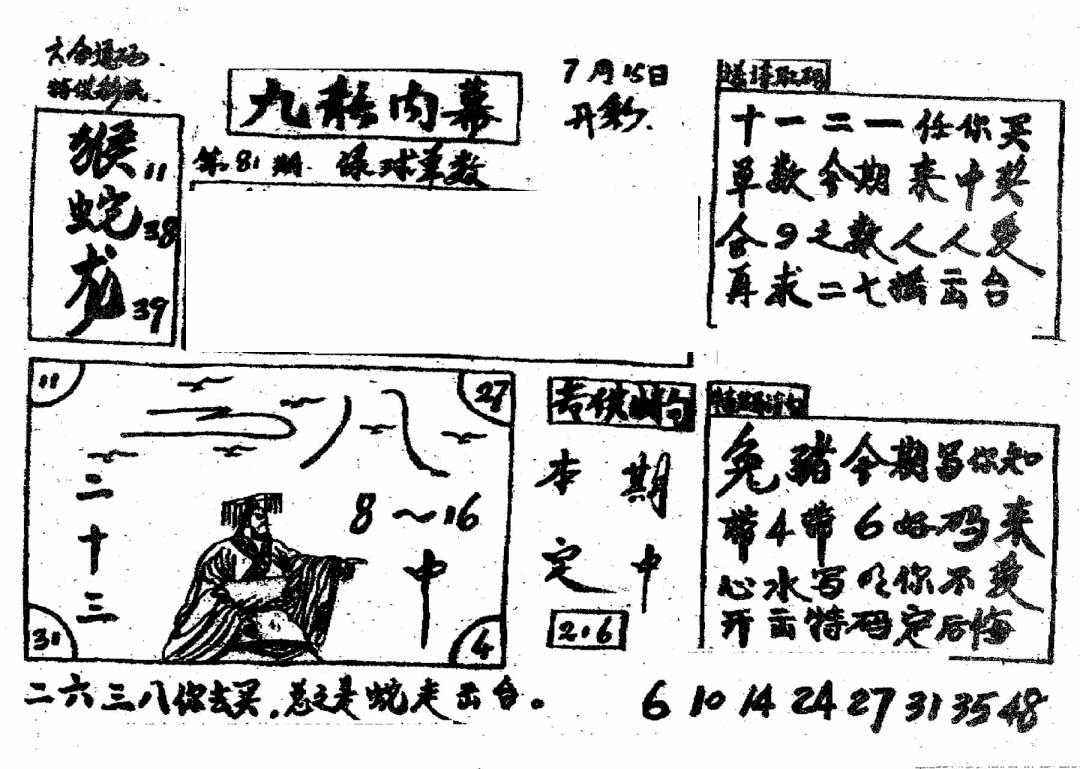 六合透码
特供彩民
九龙内幕
7月15日
开彩.
第81期.绿球单数
猴11
蛇38
龙39
送诗取码
十一二一任你买
单数今期来中奖
合9之数人人爱
再求二七摇出台
11
27
31
4
八
二十三
8~16
中
本期
定中
2.6
兔豬今期写你知
带4带6好码来
心水写明你不爱
开出特码定后悔
二六三八你去买,总之是蛇走出台。
6 10 14 24 27 31 35 48